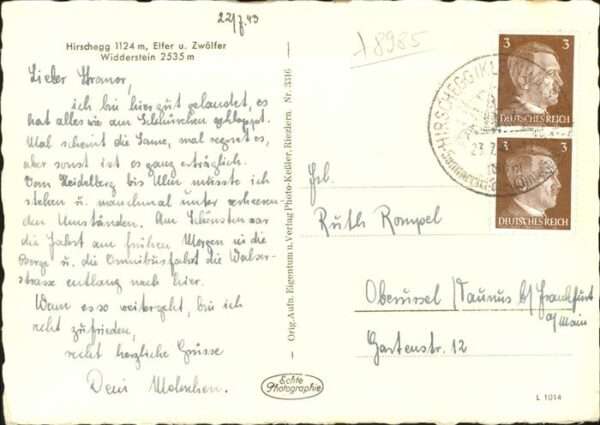 22/7.43
Hirschegg 1124 m, Elfer u. Zwölfer
Widderstein 2535 m
Lieber
ich bin hier gut gelandet, es
hat alles wie am Schnürchen geklappt.
Mal scheint die Sonne, mal regnet es,
aber sonst ist es ganz erträglich.
Von Heidelberg bis Ulm musste ich
stehen u. manchmal unter
den Umständen. Am Schönsten war
die Fahrt am frühen Morgen in die
Berge u. die Omnibusfahrt die Walser-
strasse entlang nach hier.
Wenn es so weitergeht, bin ich
recht zufrieden,
recht herzliche Grüsse
Dein
Orig. Aufn. Eigentum u. Verlag Photo-Keßler, Riezlern. Nr. 3316
Echte
Photographie
18985
3
DEUTSCHES REICH
3
DEUTSCHES REICH
HIRSCHEGG
Frl.
Ruth Rompel
Oberursel / Taunus b/ Frankfurt
a/ Main
Gartenstr. 12
L 1014